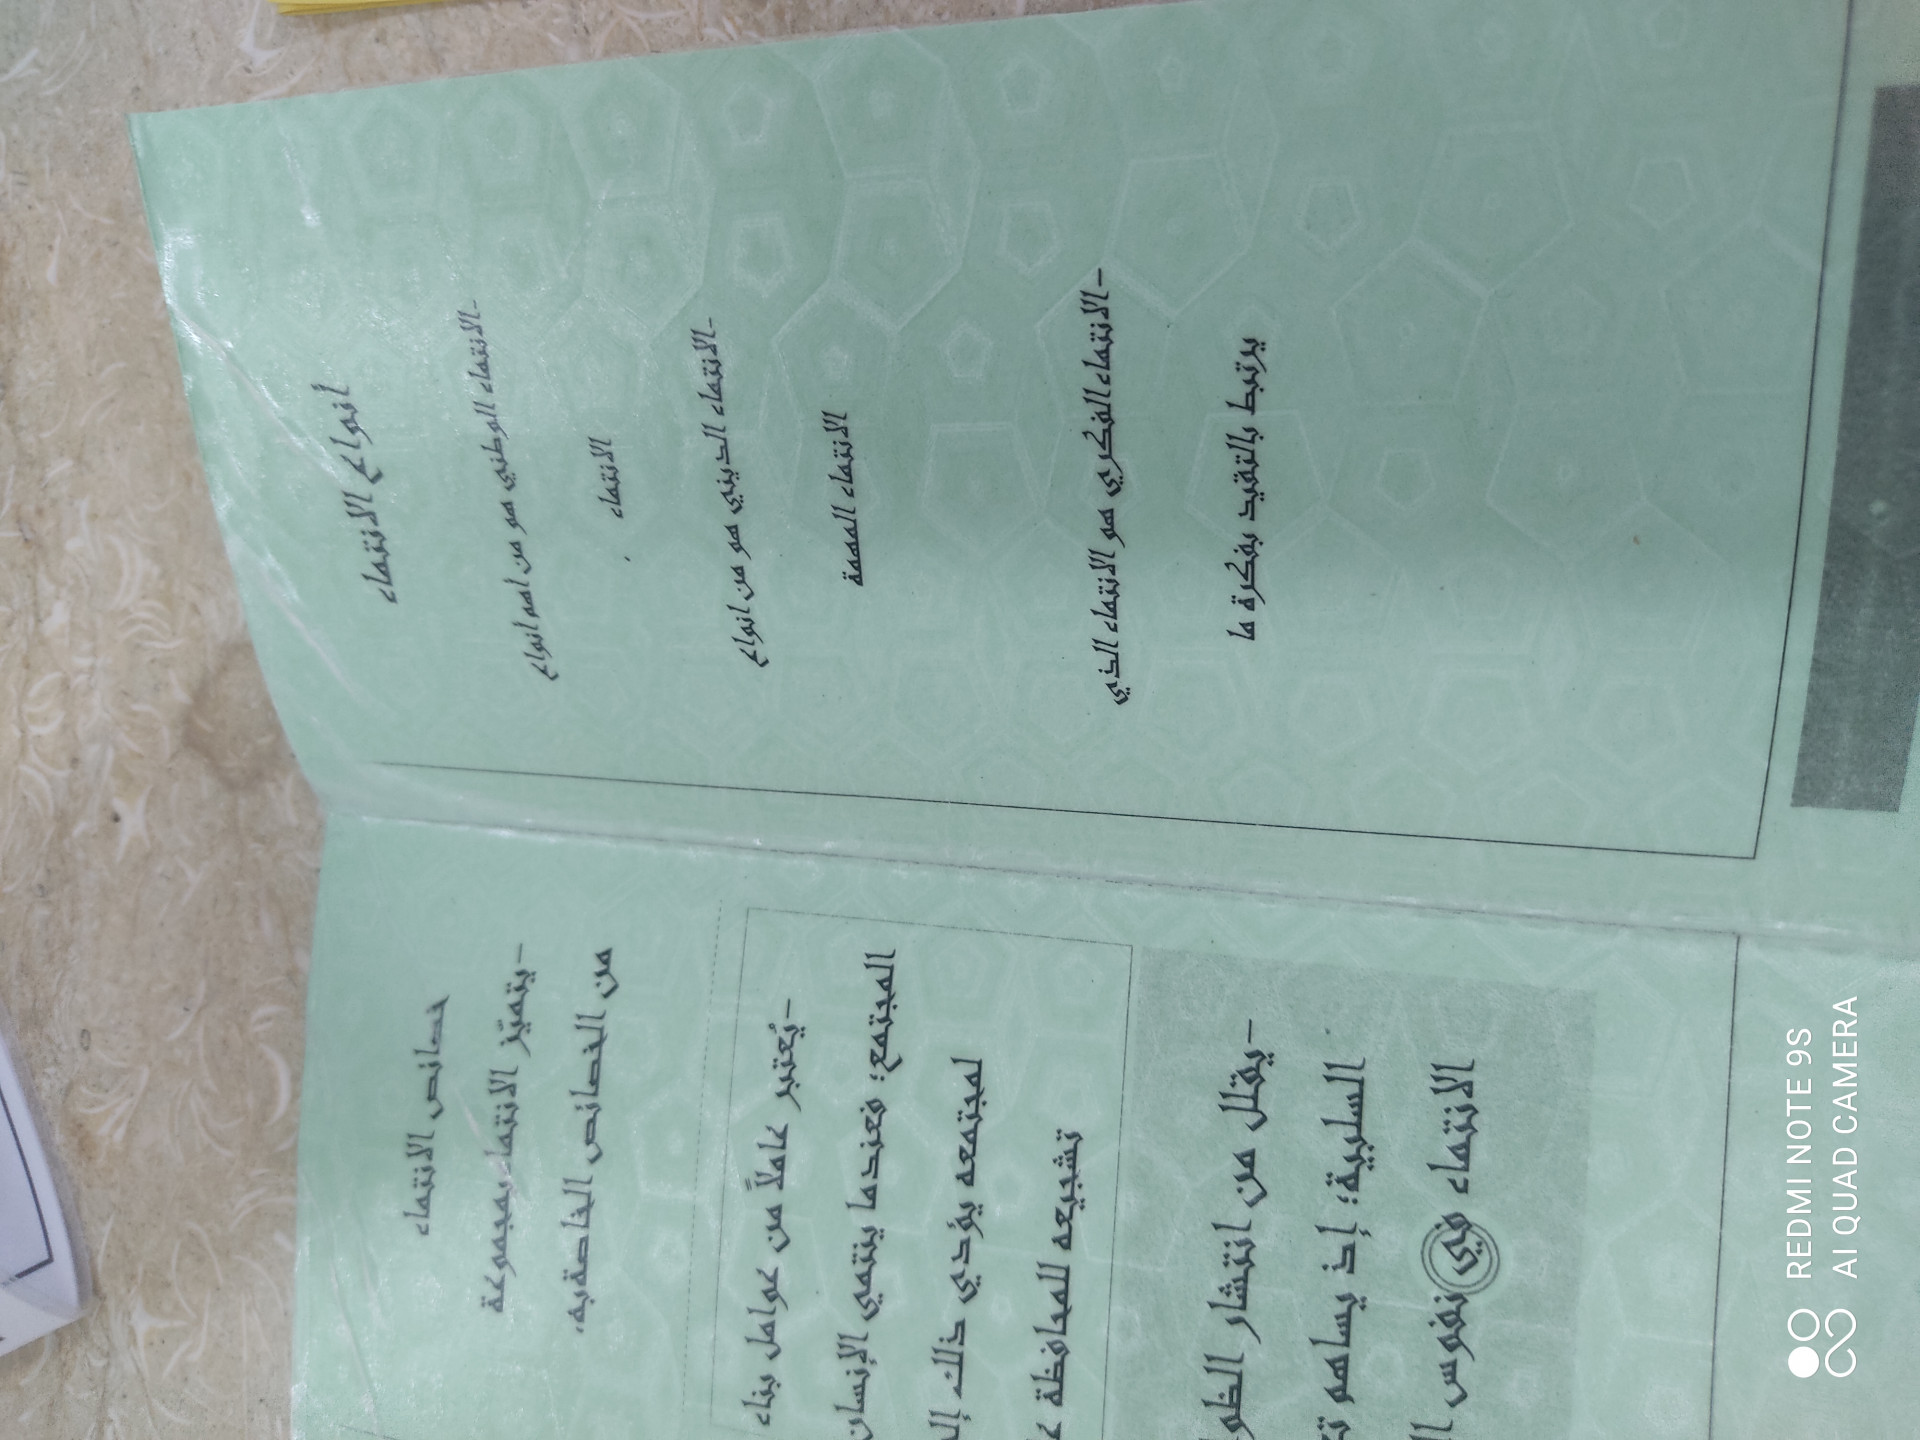 أنواع الانتماء
-الانتماء الوطني هو من اهم انواع
الانتماء
-الانتماء الديني هو من انواع
الانتماء المهمة
-الانتماء الفكري هو الانتماء الذي
يرتبط بالتقيد بفكرة ما
خصائص الانتماء
-يتميّز الانتماء بمجموعة
من الخصائص الخاصة به،
-يُعتبر عاملاً من عوامل بناء
المجتمع؛ فعندما ينتمي الإنسان
لمجتمعه يؤدي ذلك
تشجيعه للمحافظة
-يقلل من انتشار
السلبية؛ إذ يساهم
الانتماء في نفوس
REDMI NOTE 9S
AI QUAD CAMERA